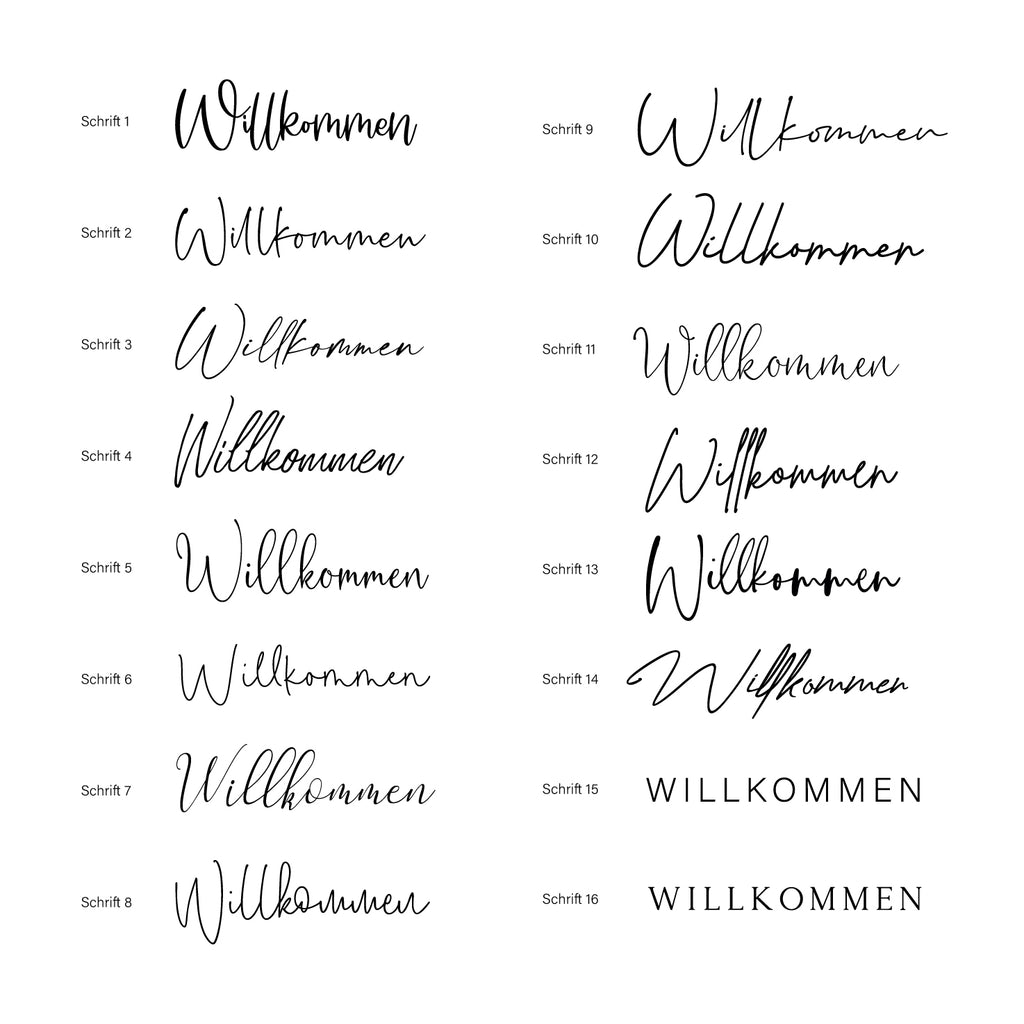 Schrift 1 Willkommen
Schrift 2 Willkommen
Schrift 3 Willkommen
Schrift 4 Willkommen
Schrift 5 Willkommen
Schrift 6 Willkommen
Schrift 7 Willkommen
Schrift 8 Willkommen
Schrift 9 Willkommen
Schrift 10 Willkommen
Schrift 11 Willkommen
Schrift 12 Willkommen
Schrift 13 Willkommen
Schrift 14 Willkommen
Schrift 15 WILLKOMMEN
Schrift 16 WILLKOMMEN